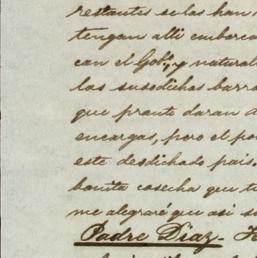 restantes se las han
tengan alli embarca
can el Gob.º, y natural
las susodichas barra
que pronto daran
encargas, pero el po
este desdichado pais.
bonita cosecha que t
me alegraré que asi s
Padre Diaz.-